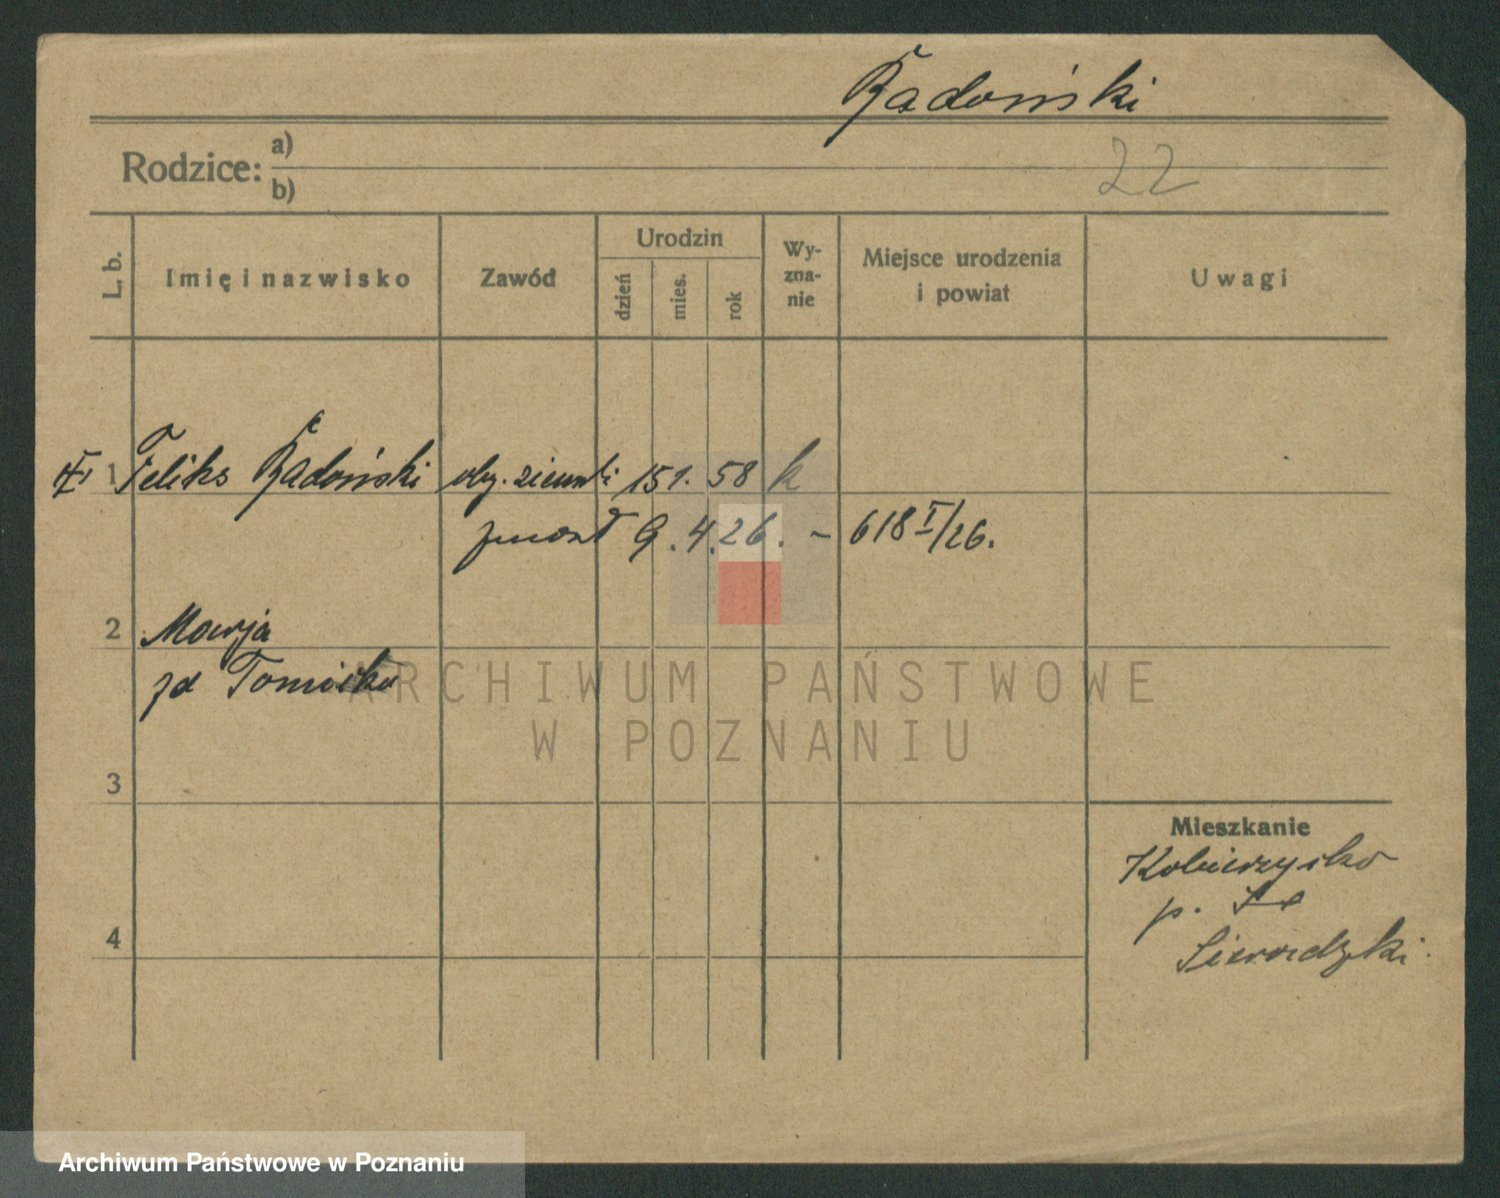 Radoński
Rodzice:
a)
b)
22
L. b.
Imię i nazwisko
Zawód
Urodzin
dzień
mies.
rok
Wy-
zna-
nie
Miejsce urodzenia
i powiat
Uwagi
1 Feliks Radoński ob. ziemski 15 1. 58 k
9. 4. 26. – 618 I/26.
2 Marja
zd Tomicka
3
4
Mieszkanie
Kobierzysko
p.
Sieradzki.
ARCHIWUM PAŃSTWOWE
W POZNANIU
Archiwum Państwowe w Poznaniu